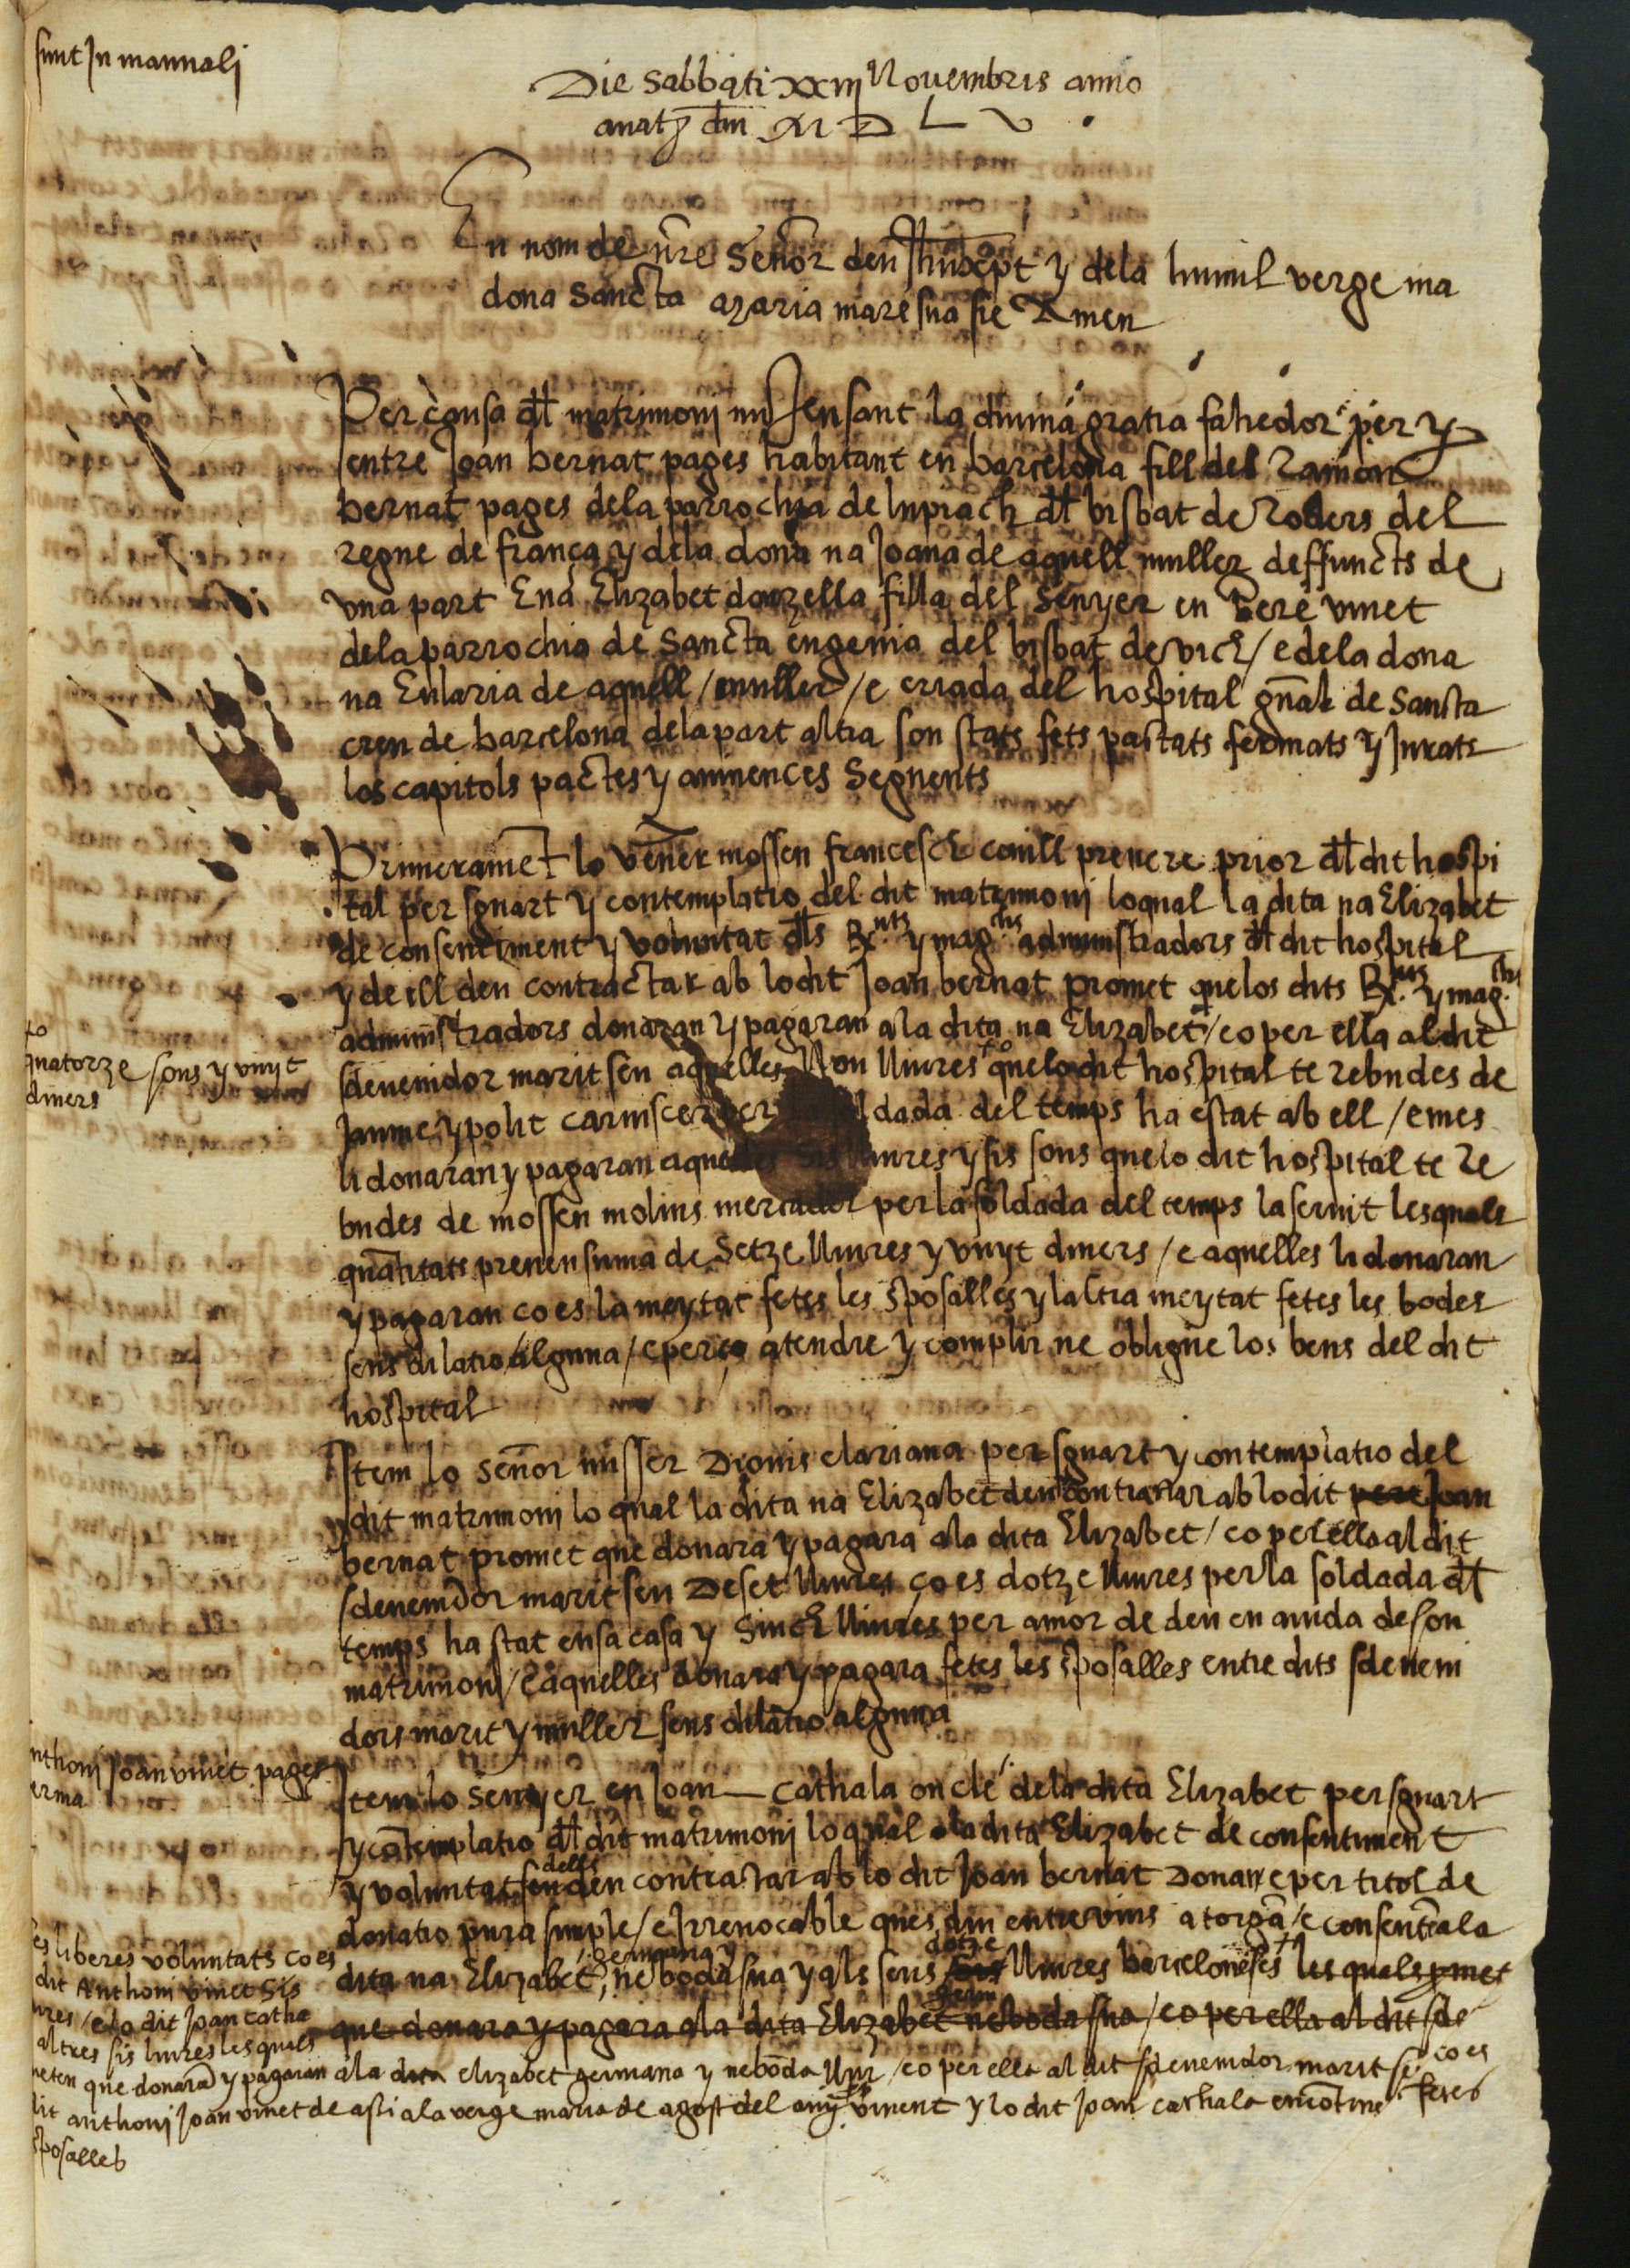 sunt in manuali
Die sabbati xxiij Novembris anno
a nat? dm M D L V .
En nom de nre Señor deu Jhu xpt y dela humil verge ma
dona Sancta maria mare sua sie Amen
Per causa dl matrimoni mijensant la divina gratia fahedor per y
entre Joan bernat pages habitant en barcelona fill del Ramon
bernat pages dela parrochia de lupiach dl bisbat de Roders del
regne de frança y dela dona na Joana de aquell muller deffuncts de
una part E na Elizabet donzella filla del senyer en Pere vinet
dela parrochia de Sancta eugenia del bisbat de vich / e dela dona
na Eularia de aquell / muller / e criada del hospital gnal de Sancta
creu de barcelona dela part altra son stats fets pactats fermats y Jurats
los capitols pactes y avinences Seguents
Primerament lo vener mossen francesch conill prevere prior dl dit hospi
tal per sguart y contemplatio del dit matrimoni loqual la dita na Elizabet
de consentiment y voluntat dls Rx.nts y mag.chs administradors dl dit hospital
y de ill deu contractar ab lo dit Joan bernat promet que los dits Rx.nts y mag.chs
administradors donaran y pagaran a la dita na Elizabet / eo per ella al dit
sdevenidor marit seu aquelles Nou lliures que lo dit hospital te rebudes de
quatorze sous y vuyt
diners
Jaume ypolit carniscer per dada del temps ha estat ab ell / e mes
li donaran y pagaran aquelles sis lliures y sis sous que lo dit hospital te re
budes de mossen molins mercader per la soldada del temps la servit les quals
quantitats prenen suma de Setze lliures y vuyt diners / e aquelles li donaran
y pagaran ço es la meytat fetes les sposalles y laltra meytat fetes les bodes
sens dilatio alguna / e per ço atendre y complir ne obligue los bens del dit
hospital
Item lo señor misser Dionis clariana per sguart y contemplatio del
dit matrimoni lo qual la dita na Elizabet deu contractar ab lo dit pere Joan
bernat promet que donara y pagara a la dita Elizabet / eo per ella al dit
sdevenidor marit seu Deset lliures ço es dotze lliures per la soldada dl
temps ha stat en sa casa y Sinch lliures per amor de deu en aiuda de son
matrimoni / e aquelles donara y pagara fetes les sposalles entre dits sdeveni
dors marit y muller sens dilatio alguna
nthoni Joan vinet pages
erma
Item lo senyer en Joan — cathala oncle dela dita Elizabet per sguart
y contemplatio dl dit matrimoni lo qual la dita Elizabet de consentiment
y voluntat seu dells deu contractar ab lo dit Joan bernat Donan e per titol de
donatio pura simple / e irrevocable ques diu entre vius a torgan / e consenten a la
dita na Elizabet, germana y neboda sua y als seus sis dotze lliures barceloneses les quals pmet
que donara y pagara a la dita Elizabet germ neboda sua / eo per ella al dit sde
es liberes voluntats ço es
dit Anthoni vinet sis
ures / e lo dit Joan catha
altres sis liures les quals
meten que donaran y pagaran a la dita elizabet germana y neboda llur / eo per ella al dit sdevenidor marit seu ço es
dit anthoni Joan vinet de assi a la verge maria de agost del any vinent y lo dit Joan cathala encontinet fetes
sposalles